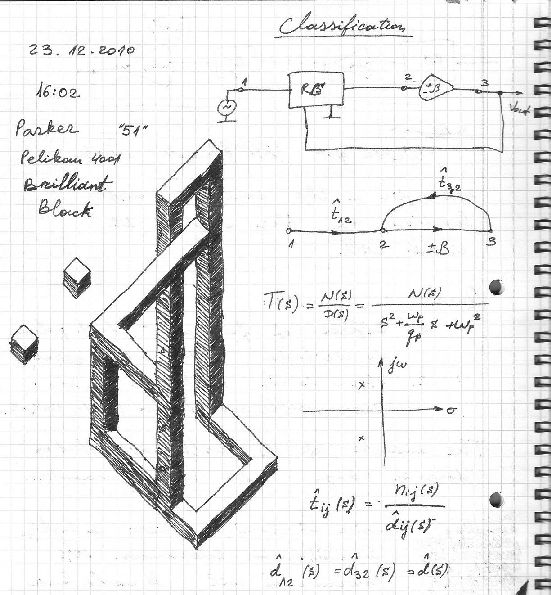 Classification
23.12.2010
16:02
Parker "51"
Pelikan 4001
Brilliant
Black
1
2
3
±β
Vout
t̂12
t̂32
1
2
3
±β
T(s) = N(s)/D(s) = N(s)/(s² + ωp/qp s + ωp²)
jω
σ
x
x
t̂ij(s) = nij(s)/d̂ij(s)
d̂12(s) = d̂32(s) = d̂(s)